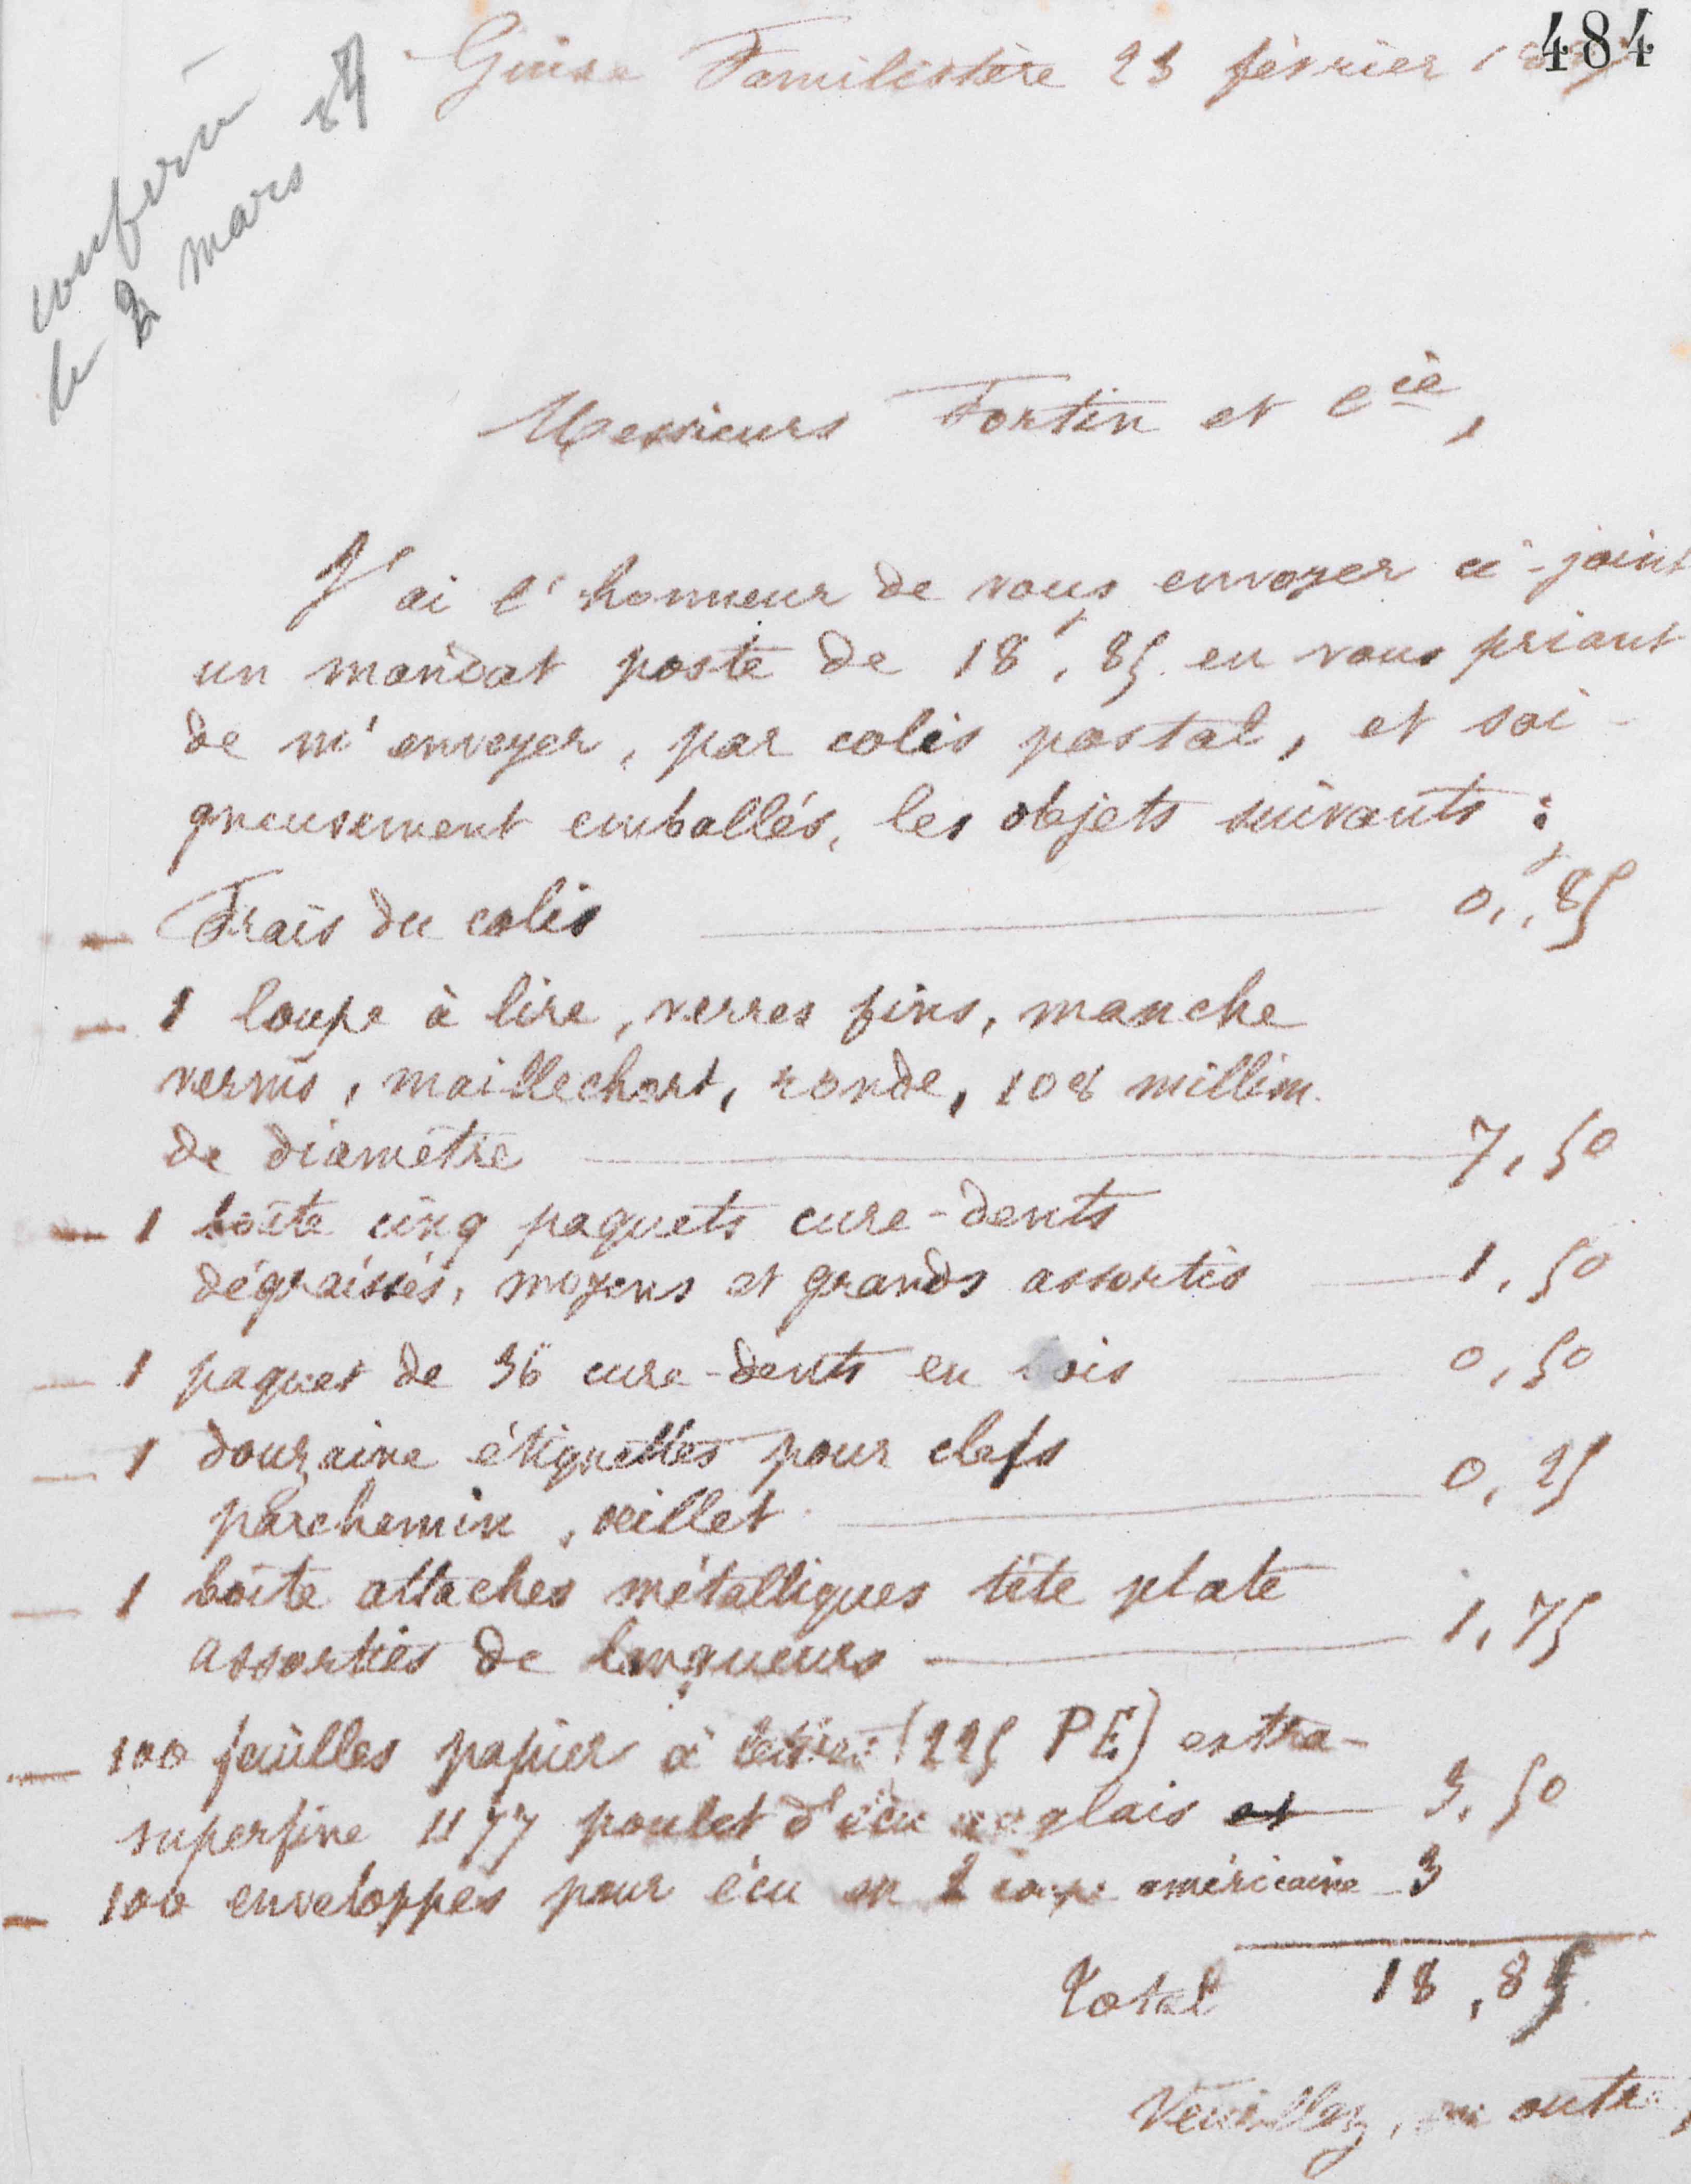 484
Guise Familistère 23 février
conféré
le 2 mars 89
Messieurs Fortin et Cie,
J'ai l'honneur de vous envoyer ci-joint
un mandat poste de 18f,85 en vous priant
de m'envoyer, par colis postal, et soi-
gneusement emballés, les objets suivants :
— Frais du colis — 0,f85
— 1 loupe à lire, verres fins, manche
vernis, maillechort, ronde, 108 millim.
de diamètre — 7,50
— 1 boîte cinq paquets cure-dents
dégraissés, moyens et grands assortis — 1,50
— 1 paquet de 36 cure-dents en bois — 0,50
— 1 douzaine étiquettes pour clefs
parchemin, œillet — 0,25
— 1 boîte attaches métalliques tête plate
assorties de longueurs — 1,75
— 100 feuilles papier à lettre (225 PE) extra-
superfine 1177 poulet d'écu anglais et — 3,50
— 100 enveloppes pour écu en 2 américaine — 3
Total 18,85
Veuillez, en outre,